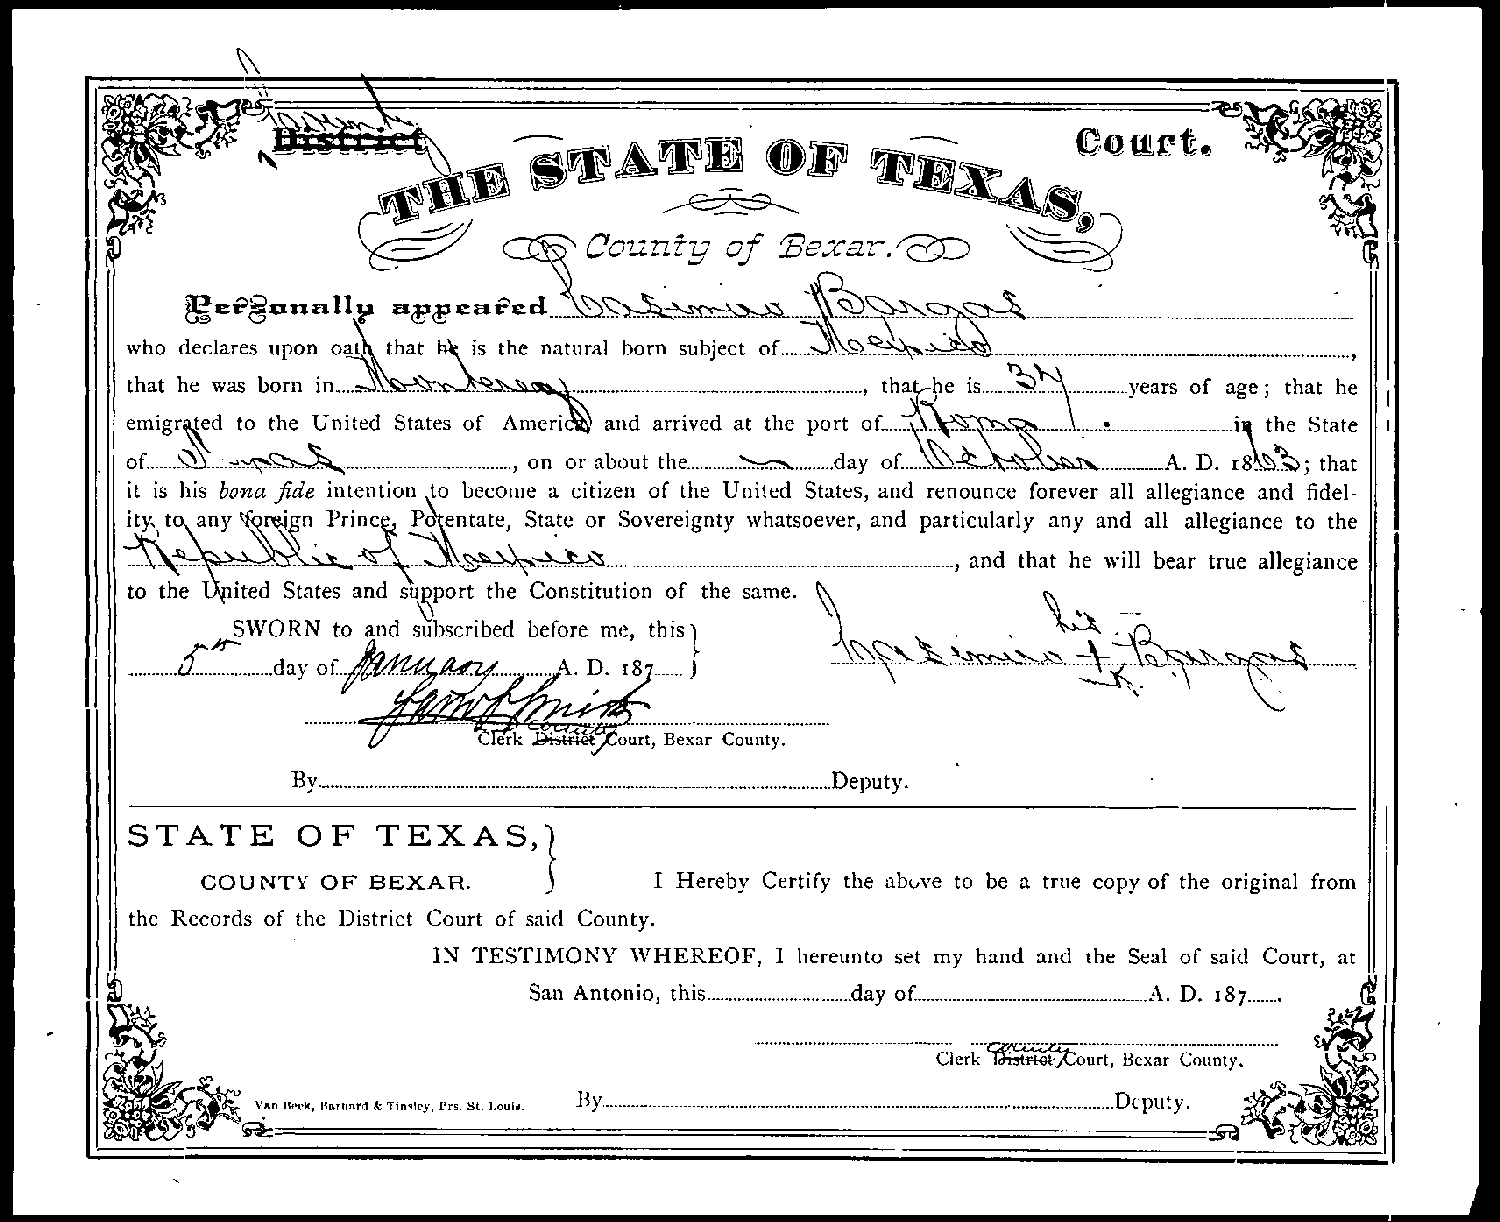 County
District Court.
THE STATE OF TEXAS,
County of Bexar.
Personally appeared Casimiro Bargas
who declares upon oath that he is the natural born subject of Mexico
that he was born in Monterey, that he is 37 years of age; that he
emigrated to the United States of America and arrived at the port of Roma in the State
of Texas, on or about the day of October A. D. 1863; that
it is his bona fide intention to become a citizen of the United States, and renounce forever all allegiance and fidel-
ity to any foreign Prince, Potentate, State or Sovereignty whatsoever, and particularly any and all allegiance to the
Republic of Mexico, and that he will bear true allegiance
to the United States and support the Constitution of the same.
SWORN to and subscribed before me, this
5th day of January A. D. 187
his
Casimiro + Bargas
Sam S Smith
County
Clerk District Court, Bexar County.
By Deputy.
STATE OF TEXAS,
COUNTY OF BEXAR.
I Hereby Certify the above to be a true copy of the original from
the Records of the District Court of said County.
IN TESTIMONY WHEREOF, I hereunto set my hand and the Seal of said Court, at
San Antonio, this day of A. D. 187 .
County
Clerk District Court, Bexar County.
By Deputy.
Van Beek, Barnard & Tinsley, Prs. St. Louis.